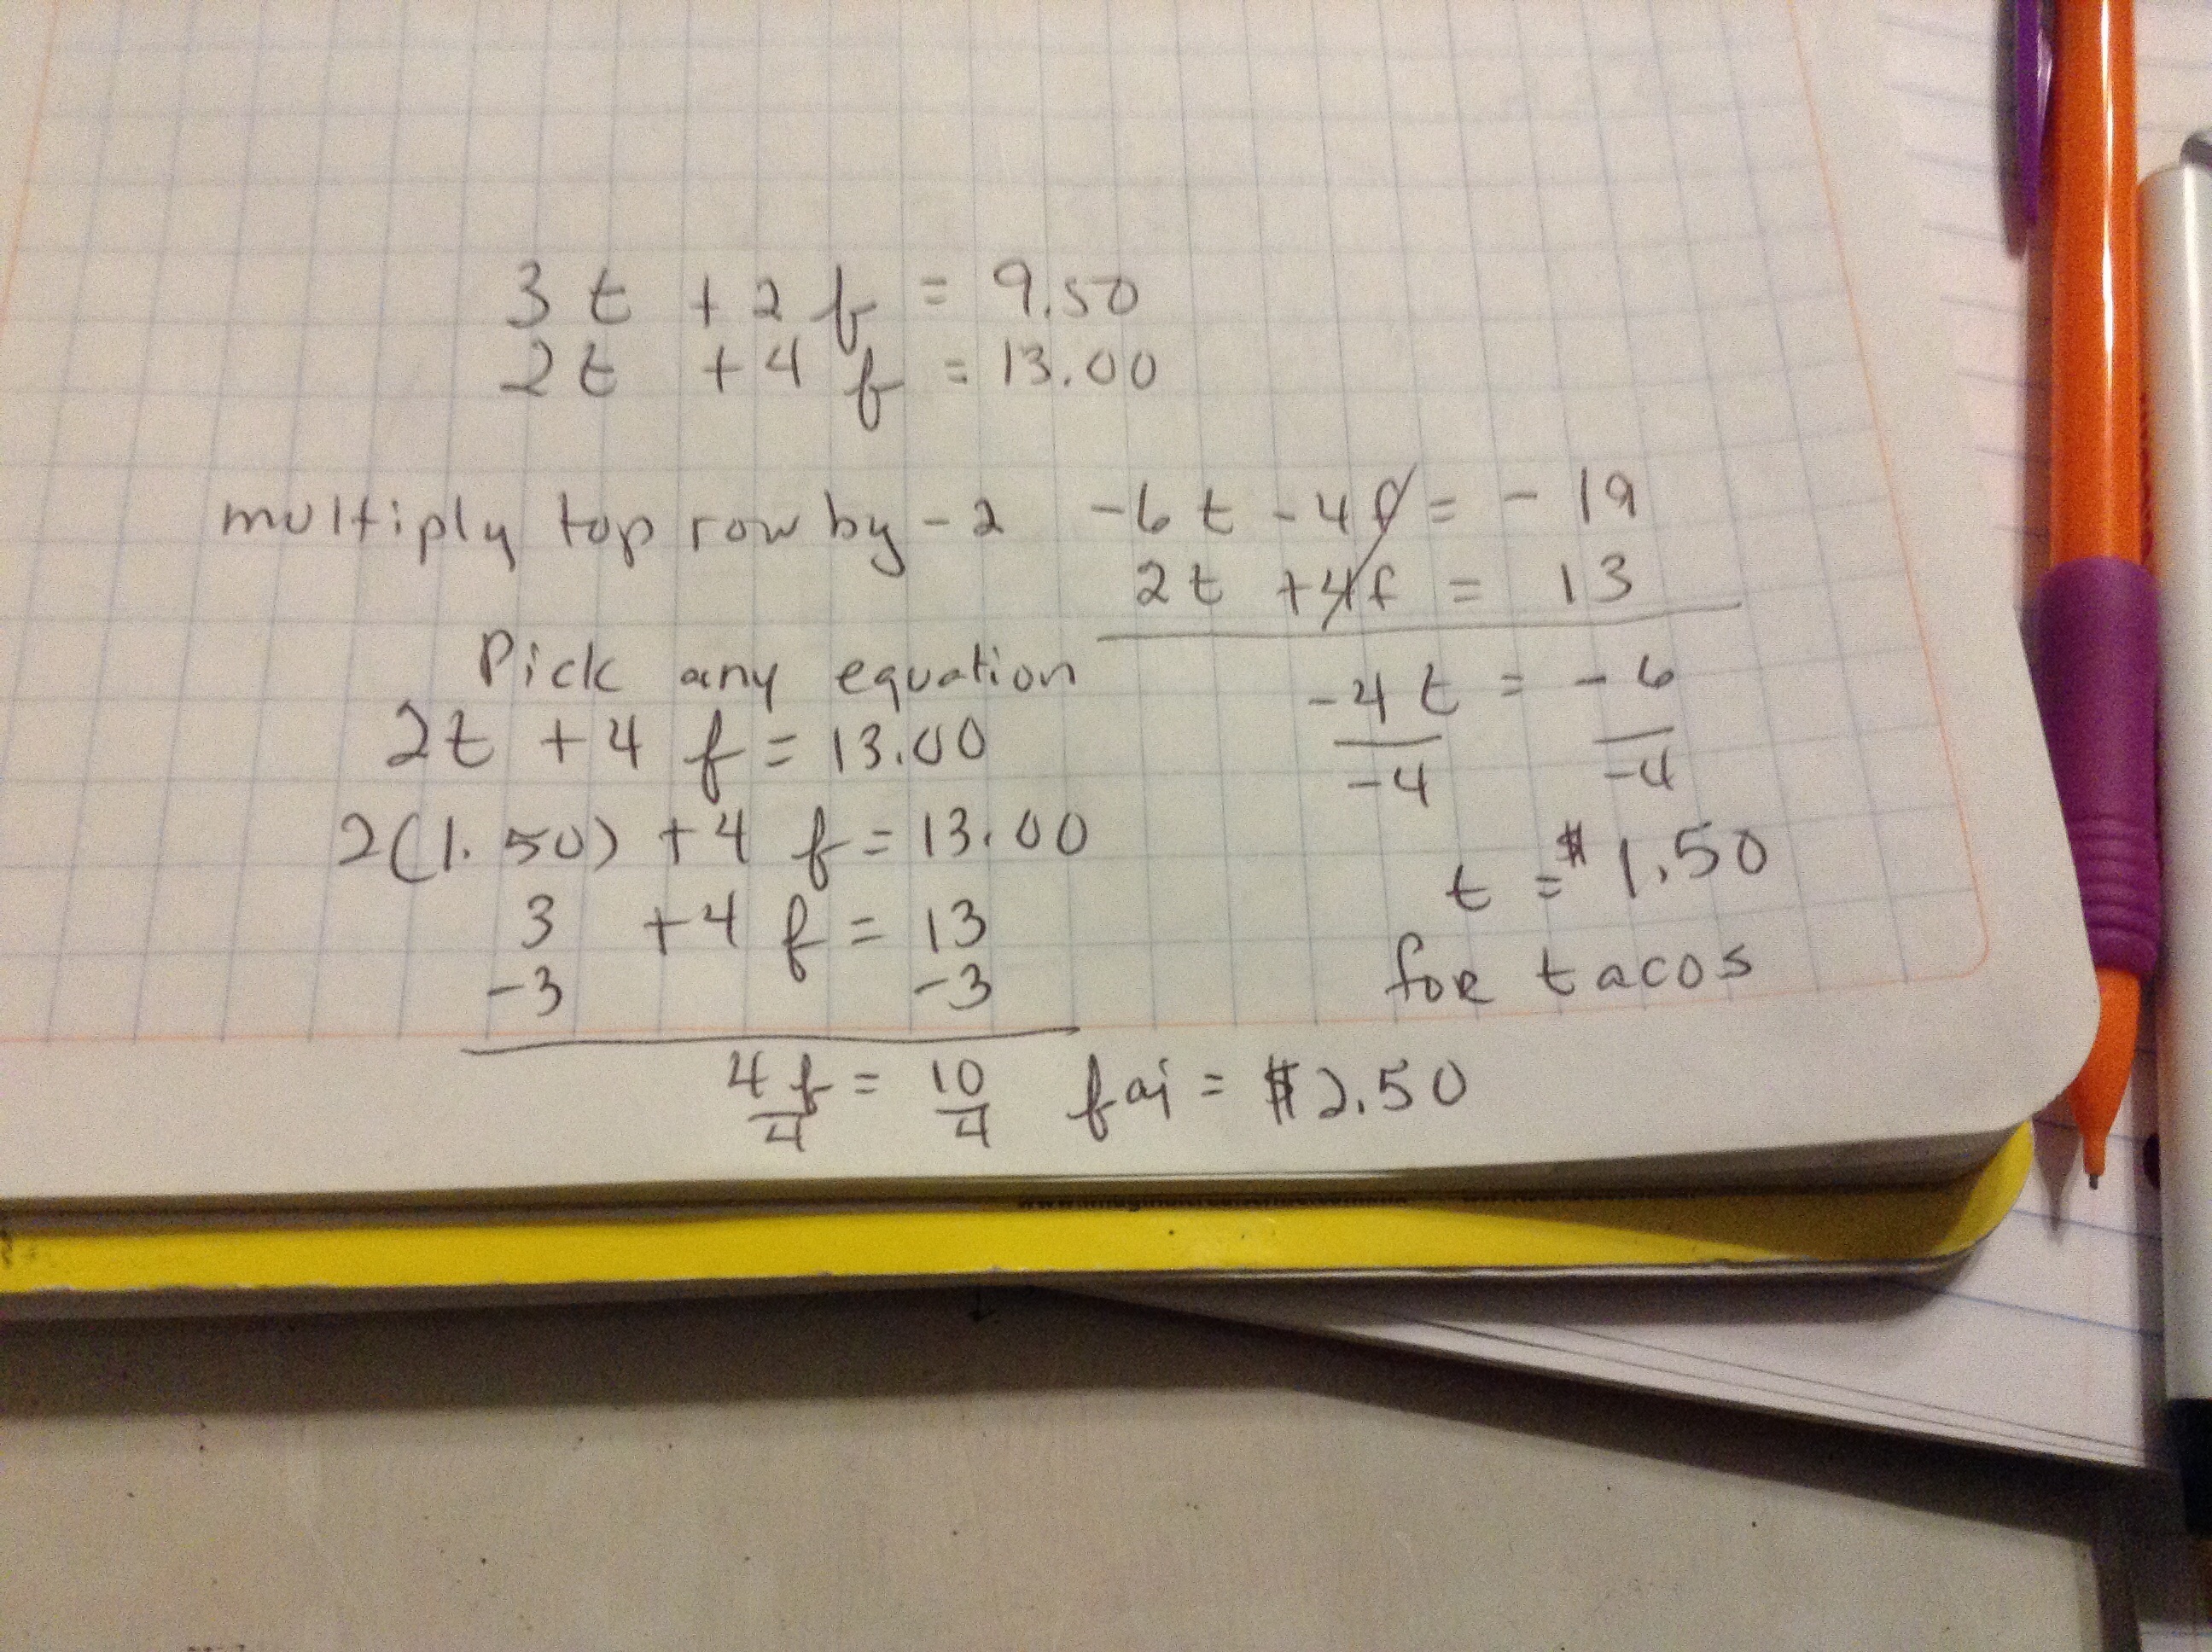 3t + 2f = 9.50
2t + 4f = 13.00
multiply top row by -2
-6t - 4f = -19
2t + 4f = 13
-4t = -6
-4 -4
t = $1.50
for tacos
Pick any equation
2t + 4f = 13.00
2(1.50) + 4f = 13.00
3 + 4f = 13
-3 -3
4f = 10 faj = $2.50
4 4